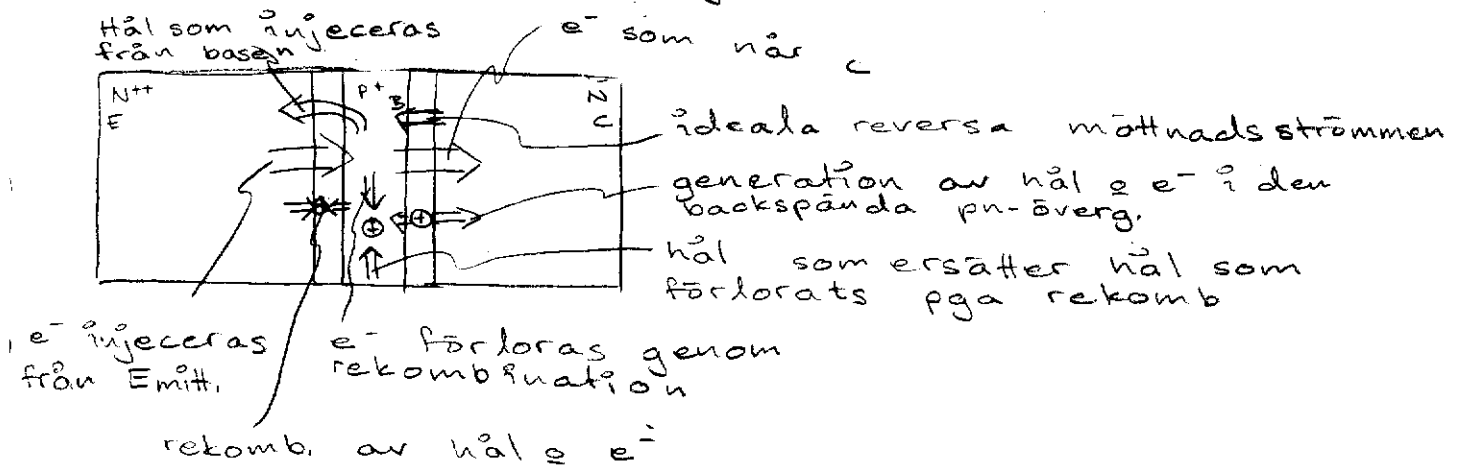 Hål som injeceras
från basen
e⁻ som når C
N⁺⁺
E
P⁺
B
N
C
ideala reversa mättnadsströmmen
generation av hål o e⁻ i den
backspända pn-överg.
hål som ersätter hål som
förlorats pga rekomb
e⁻ injeceras
från Emitt.
e⁻ förloras genom
rekombination
rekomb. av hål o e⁻